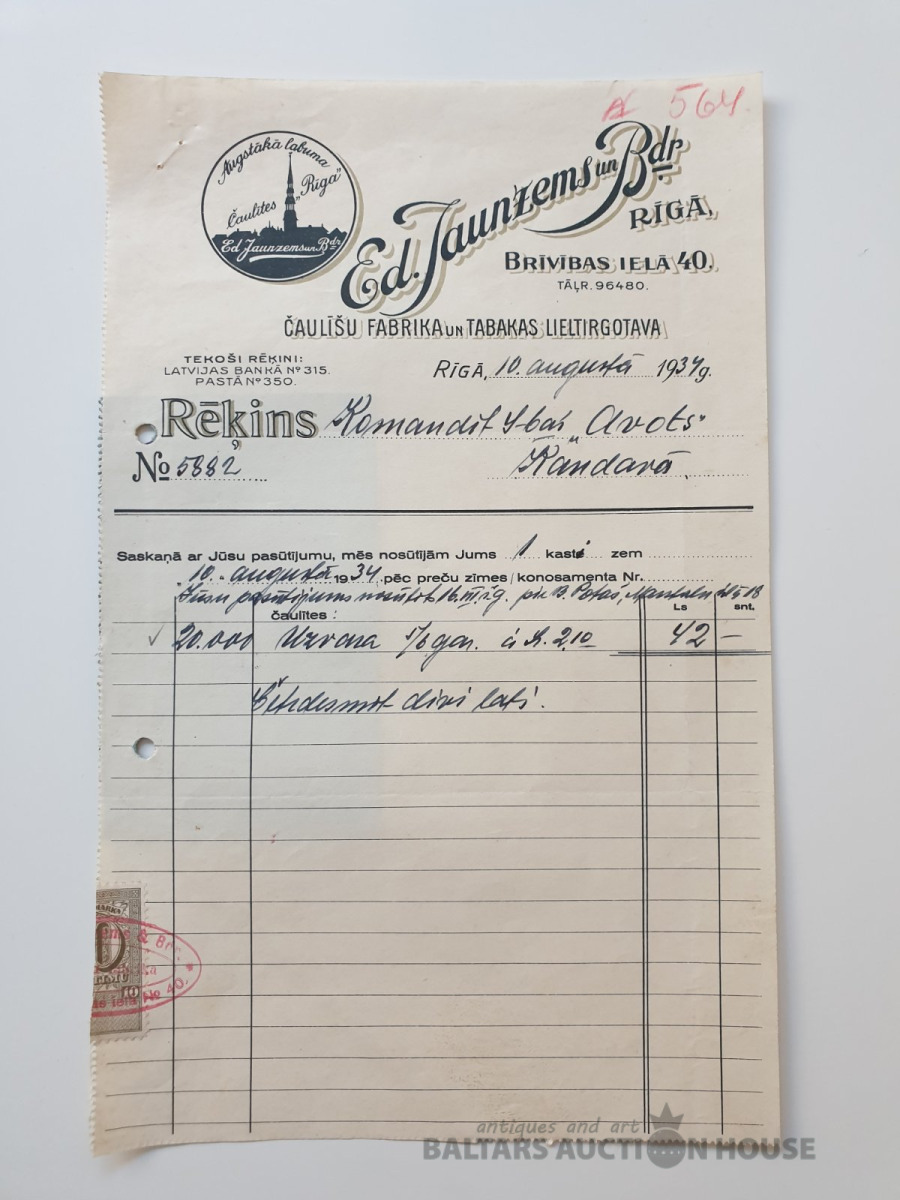 564.
Augstākā labuma
Čaulītes "Rīga"
Ed. Jaunzems un Bdr.
Ed. Jaunzems un Bdr.
RĪGĀ,
BRĪVĪBAS IELĀ 40.
TĀĻR. 96480.
ČAULĪŠU FABRIKA UN TABAKAS LIELTIRGOTAVA
TEKOŠI RĒĶINI:
LATVIJAS BANKĀ No 315.
PASTĀ No 350.
RĪGĀ, 10. augustā 1934 g.
Rēķins Komandit S-bai „Avots"
No 5882 Kandavā
Saskaņā ar Jūsu pasūtījumu, mēs nosūtījām Jums 1 kasti zem
10. augustā 1934 pēc preču zīmes / konosamenta Nr.
Jūsu pasūtījums nosūtīt 16.
čaulītes: Ls snt.
20.000 Uzvara gar. à 2,10 42 —
Četrdesmit divi lati.
MARKA
& Br.
10
No 40.
antiques and art
BALTARS AUCTION HOUSE